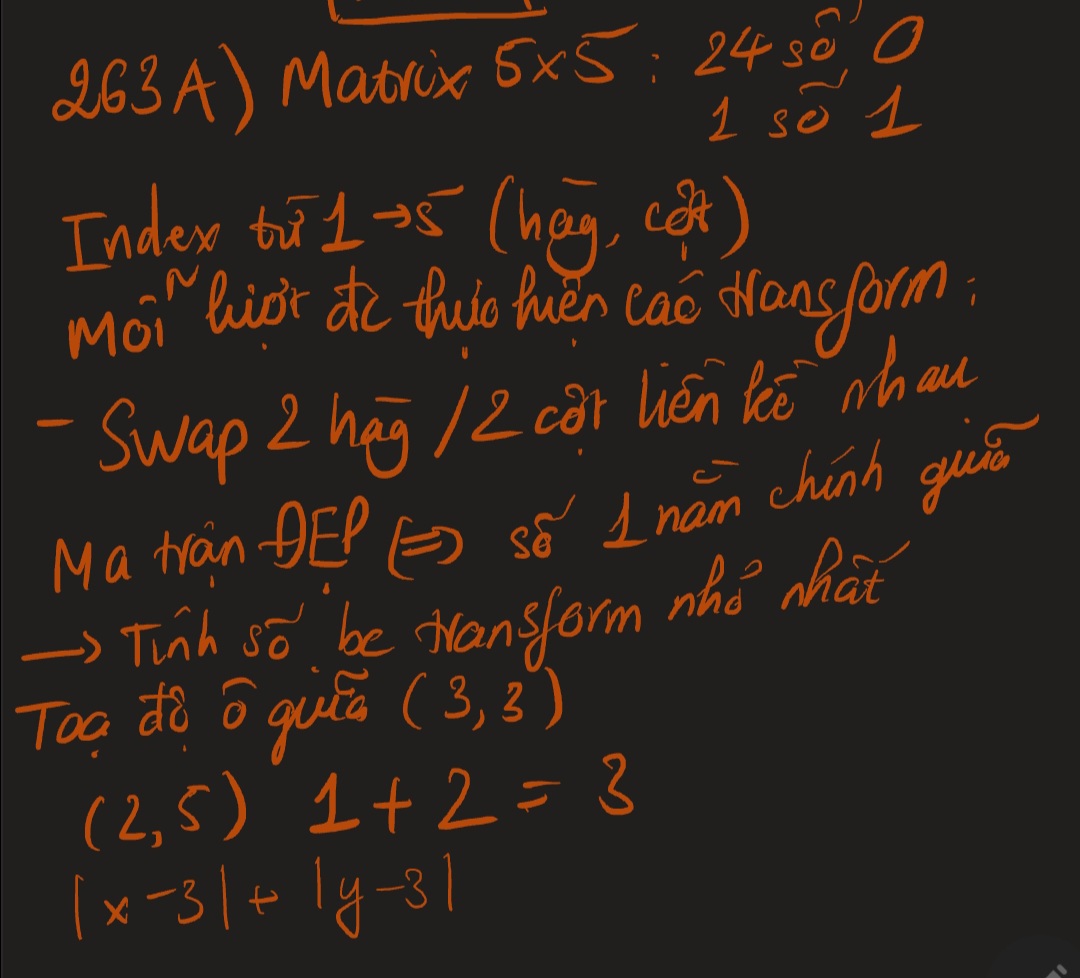 263A) Matrix 5x5 : 24 số 0
1 số 1
Index từ 1→5 (hàg, cột)
Mỗi lượt đc thực hiện các transform :
- Swap 2 hàg / 2 cột liền kề nhau
Ma trận ĐẸP <=> số 1 nằm chính giữa
→ Tính số bc transform nhỏ nhất
Toạ độ ô giữa (3,3)
(2,5) 1+2 = 3
|x-3| + |y-3|